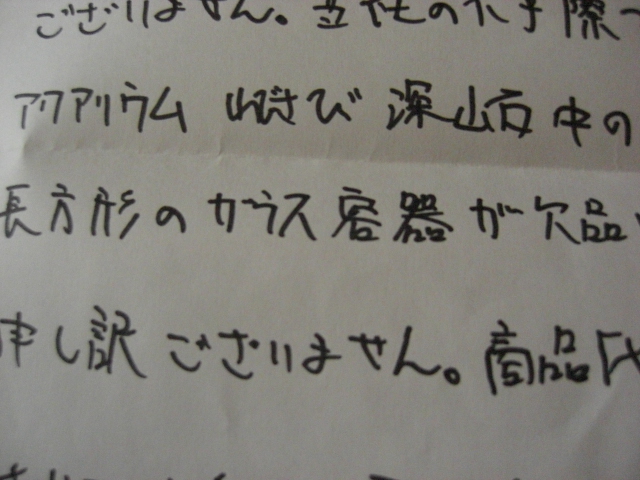 ございません。 の不手際
アクアリウム わびさび 深山石中の
長方形のガラス容器が欠品
申し訳ございません。商品